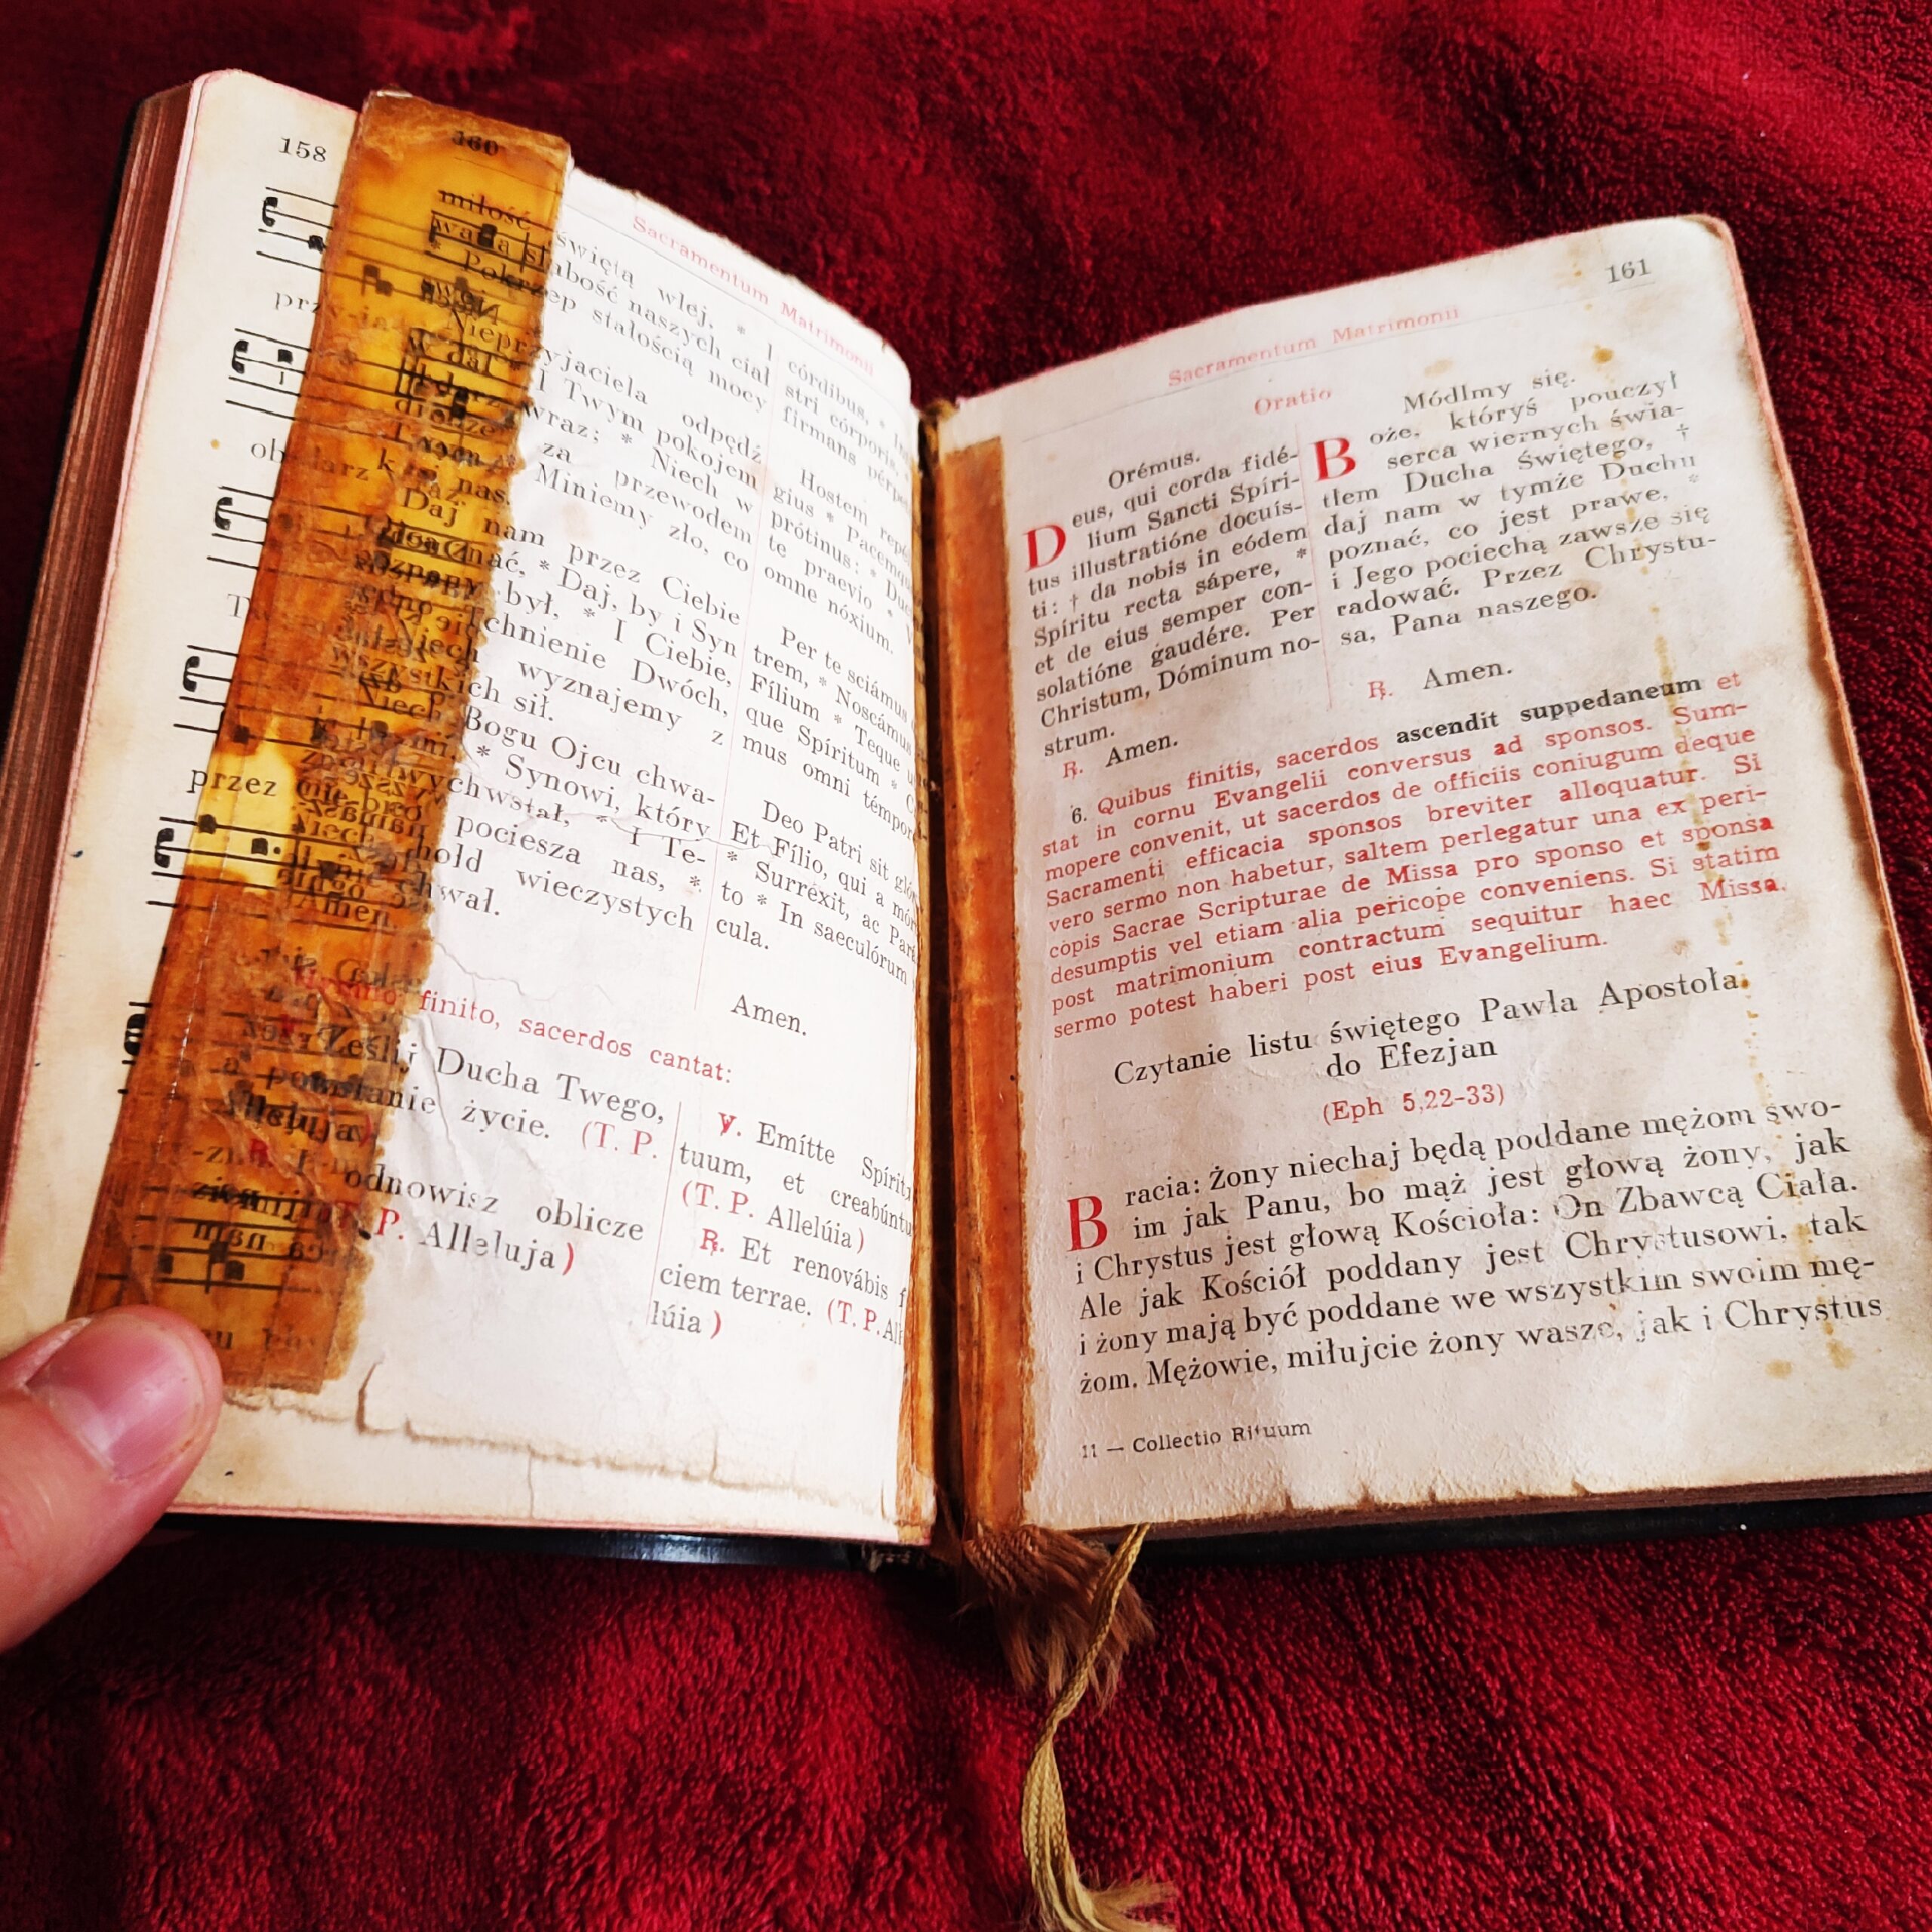 158
160
Sacramentum Matrimonii
miłość świętą wlej, *
słabość naszych ciał
* Pokrzep stałością mocy
Nieprzyjaciela odpędź
w dal * I Twym pokojem
wraz; * Niech w
za przewodem
Miniemy zło, co
k nas.
Daj nam przez Ciebie
znać, * Daj, by i Syn
poznany był, * I Ciebie,
Tchnienie Dwóch,
Niech wyznajemy z
wszystkich sił.
Niech Bogu Ojcu chwa-
* Synowi, który
zmartwychwstał, * I Te-
pociesza nas, *
Niech hołd wieczystych
chwał.
Amen
córdibus, *
stri córporis
firmans pérpe
Hostem repé
gius * Pacemqu
prótinus: * Duc
te praevio *
omne nóxium.
Per te sciámus
trem, * Noscámus
Fílium * Teque
que Spíritum *
mus omni témpore
Deo Patri sit glór
Et Fílio, qui a mór
* Surréxit, ac Pará
to * In saeculórum
cula.
Amen.
finito, sacerdos cantat:
Ześlij Ducha Twego,
a powstanie życie. (T. P.
Alleluja)
℟. I odnowisz oblicze
(T. P. Alleluja)
℣. Emítte Spírit
tuum, et creabúntu
(T. P. Allelúia)
℟. Et renovábis f
ciem terrae. (T. P. All
lúia)
przy-ja
przez
161
Sacramentum Matrimonii
Oratio
Orémus.
Deus, qui corda fidé-
lium Sancti Spíri-
tus illustratióne docuís-
ti: † da nobis in eódem
Spíritu recta sápere, *
et de eius semper con-
solatióne gaudére. Per
Christum, Dóminum no-
strum.
℟. Amen.
Módlmy się.
Boże, któryś pouczył
serca wiernych świa-
tłem Ducha Świętego, †
daj nam w tymże Duchu
poznać, co jest prawe, *
i Jego pociechą zawsze się
radować. Przez Chrystu-
sa, Pana naszego.
℟. Amen.
6. Quibus finitis, sacerdos ascendit suppedaneum et
stat in cornu Evangelii conversus ad sponsos. Sum-
mopere convenit, ut sacerdos de officiis coniugum deque
Sacramenti efficacia sponsos breviter alloquatur. Si
vero sermo non habetur, saltem perlegatur una ex peri-
copis Sacrae Scripturae de Missa pro sponso et sponsa
desumptis vel etiam alia pericope conveniens. Si statim
post matrimonium contractum sequitur haec Missa,
sermo potest haberi post eius Evangelium.
Czytanie listu świętego Pawła Apostoła
do Efezjan
(Eph 5,22-33)
Bracia: Żony niechaj będą poddane mężom swo-
im jak Panu, bo mąż jest głową żony, jak
i Chrystus jest głową Kościoła: On Zbawcą Ciała.
Ale jak Kościół poddany jest Chrystusowi, tak
i żony mają być poddane we wszystkim swoim mę-
żom. Mężowie, miłujcie żony wasze, jak i Chrystus
11 — Collectio Rituum